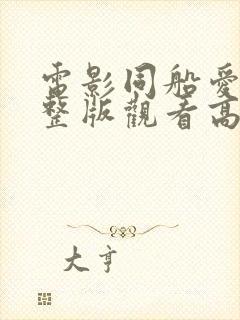 電影同船愛
整版觀看高
大亨